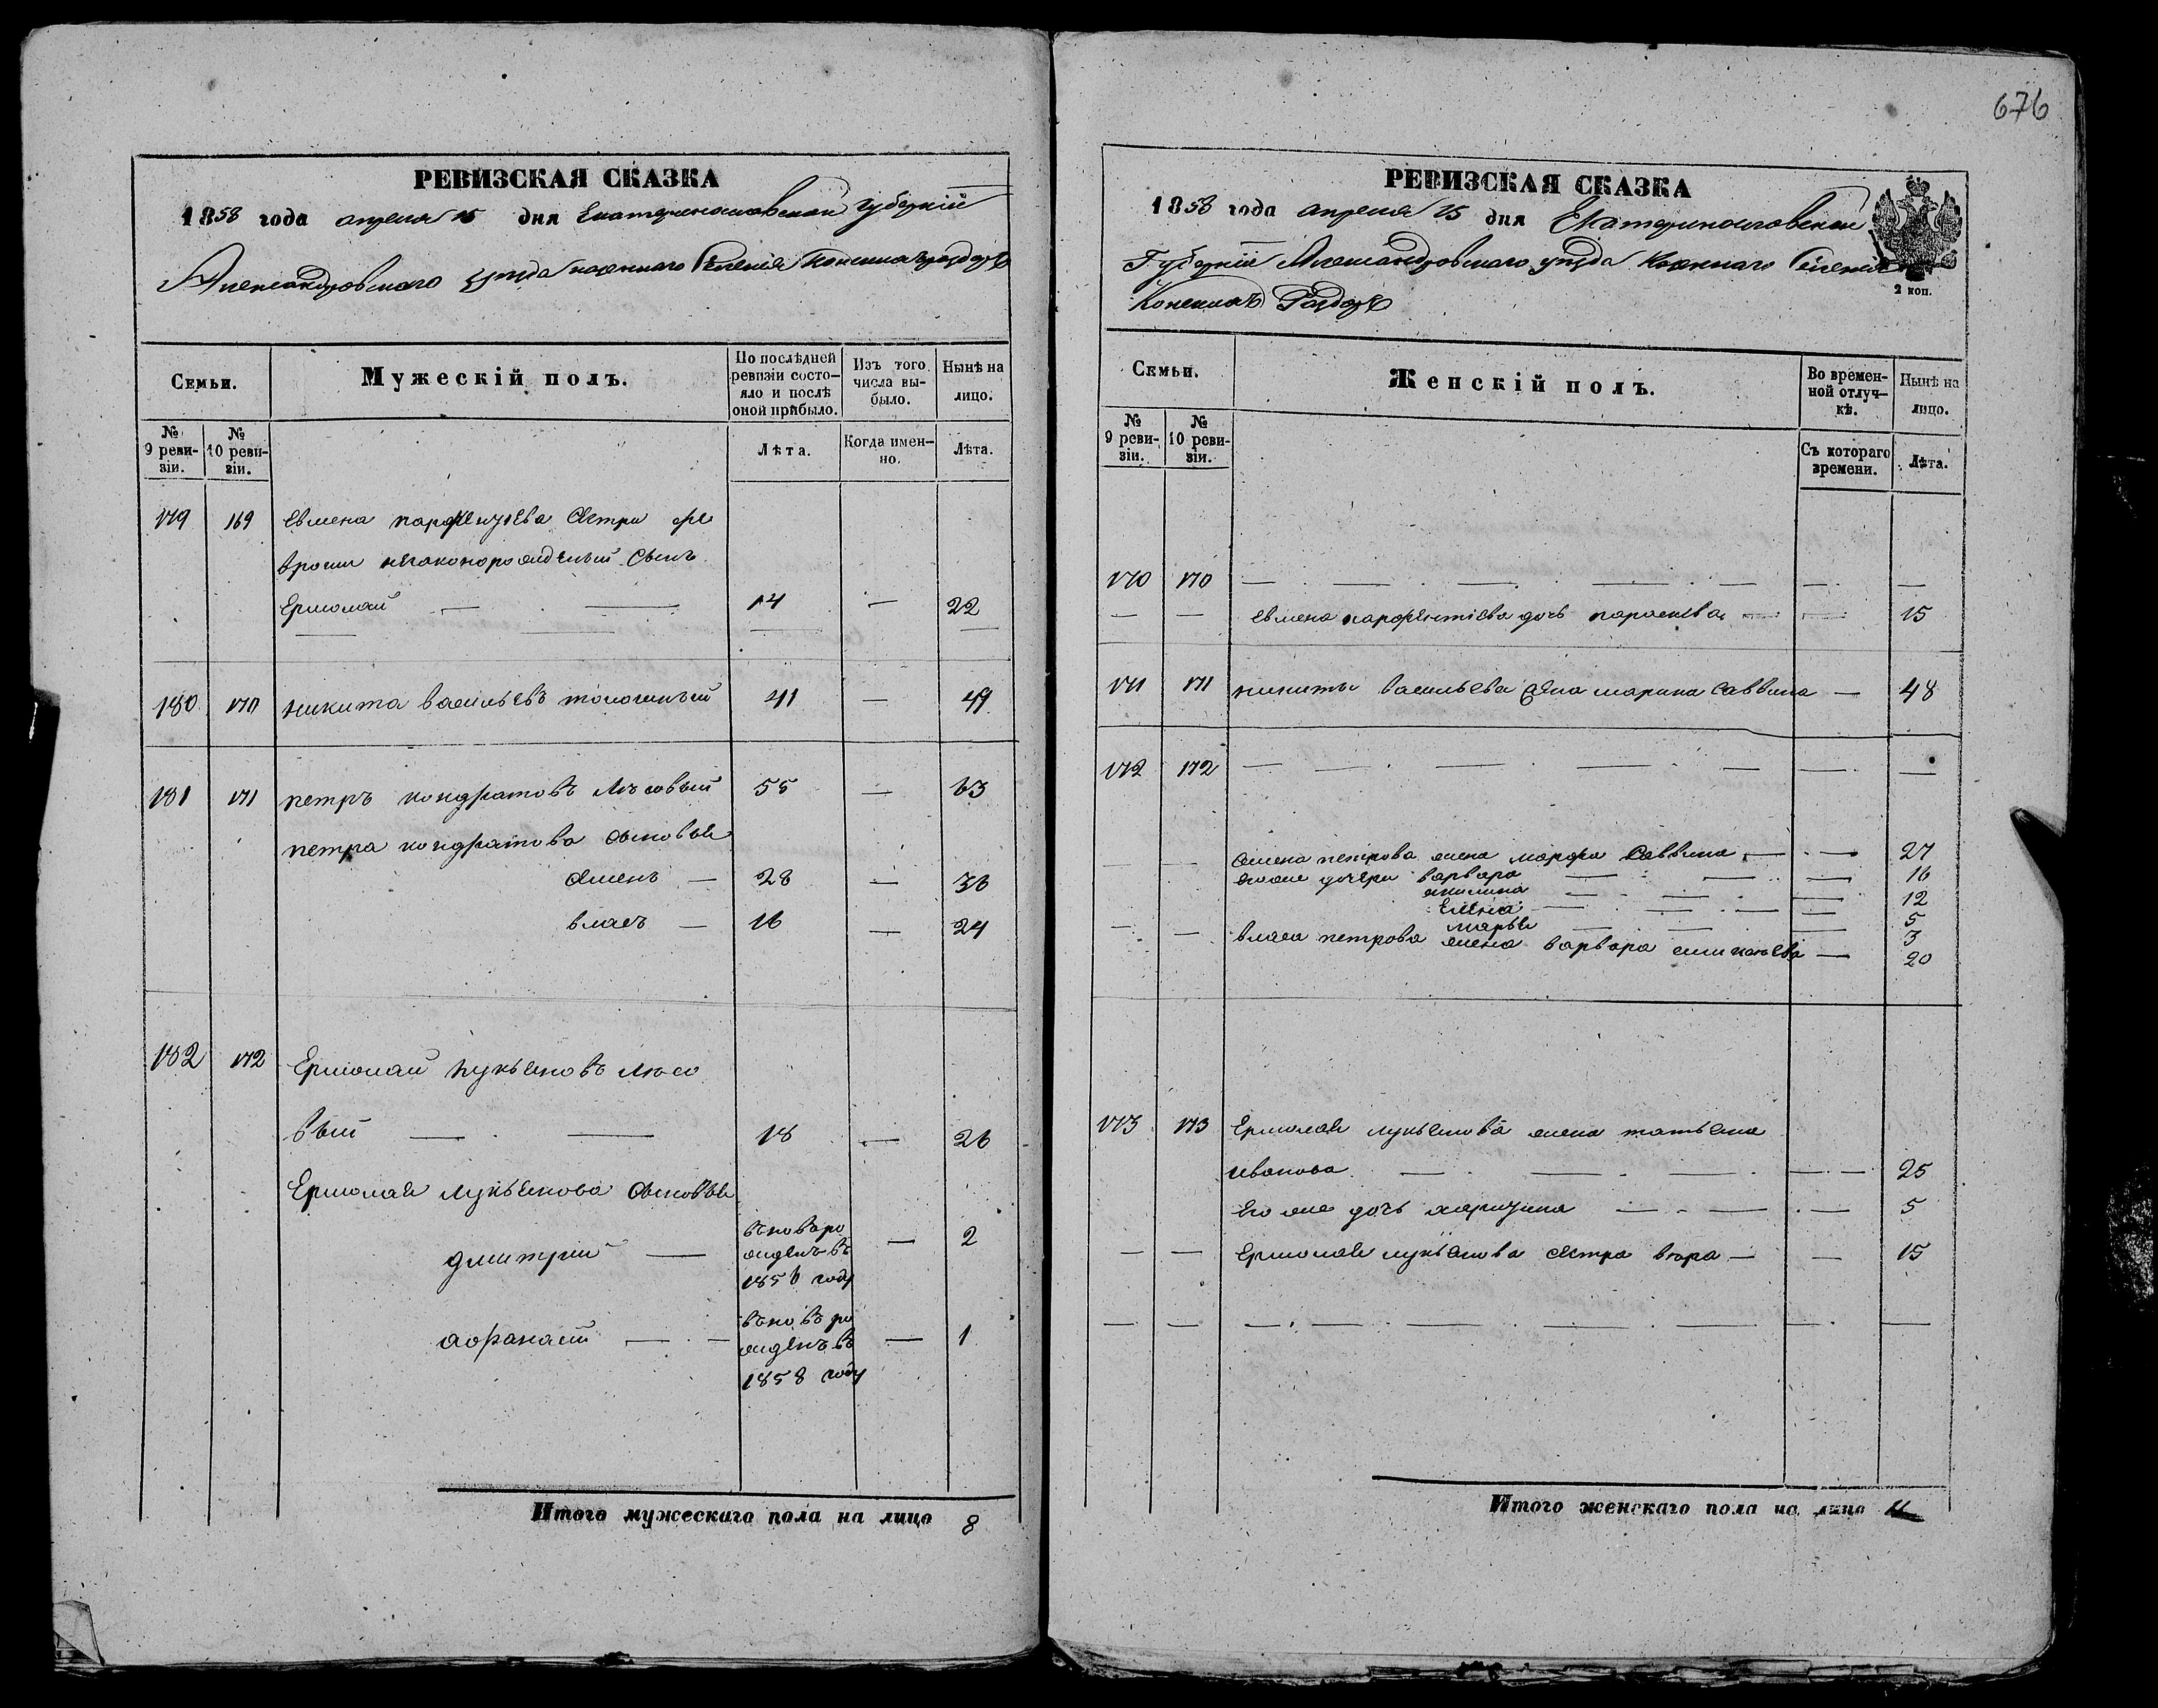 676
РЕВИЗСКАЯ СКАЗКА
1858 года апреля 15 дня Екатеринославской Губернiи
Александровского уезда казенного Селенiя Конскихъ раздоръ
Семьи.
Мужескій полъ.
По послѣдней ревизіи состо-
яло и послѣ оной прибыло.
Изъ того числа вы-
было.
Нынѣ на лицо.
№ 9 реви-
зіи.
№ 10 реви-
зіи.
Лѣта.
Когда имен-
но.
Лѣта.
179 169 Евмена парфентiева Сестри фе
вроши незаконорожденый Сынъ
Ермолай — — 14 — 22
180 170 никита васильевъ 41 — 49
181 171 петръ кондратовъ Лѣсовый 55 — 63
петра кондратова Сыновья
Семенъ — 28 — 36
власъ — 16 — 24
182 172 Ермолай лукьяновъ Лѣсо
вый — — 18 — 26
Ермолая лукьянова Сыновья
дмитрий — вновь ро
жденъ въ
1856 году — 2
афанасий — — вновь ро
жденъ въ
1858 году — 1
Итого мужескаго пола на лицо 8
РЕВИЗСКАЯ СКАЗКА
1858 года апреля 15 дня Екатеринославской
Губернiи Александровского уезда Казенного Селенiя
Конскихъ Раздоръ
2 коп.
Семьи.
Женскій полъ.
Во времен-
ной отлуч-
кѣ.
Нынѣ на лицо.
№ 9 реви-
зіи.
№ 10 реви-
зіи.
Съ котораго времени.
Лѣта.
170 170 — — — — — — —
— — евмена парфентiева дочь параскева — — 15
171 171 никиты васильева жена марина Саввина — 48
172 172 — — — — — — —
— — Семена петрова жена марфа Саввина — — 27
его же дочери варвара — — — 16
акилина — — — 12
Елена — — — — 5
марья — — — 3
— — власа петрова жена варвара — 20
173 173 Ермолая лукьянова жена татьяна
иванова — — — — — 25
Его же дочь — — — 5
— — Ермолая лукьянова сестра — — 15
— — — — — — — — —
Итого женскаго пола на лицо 11